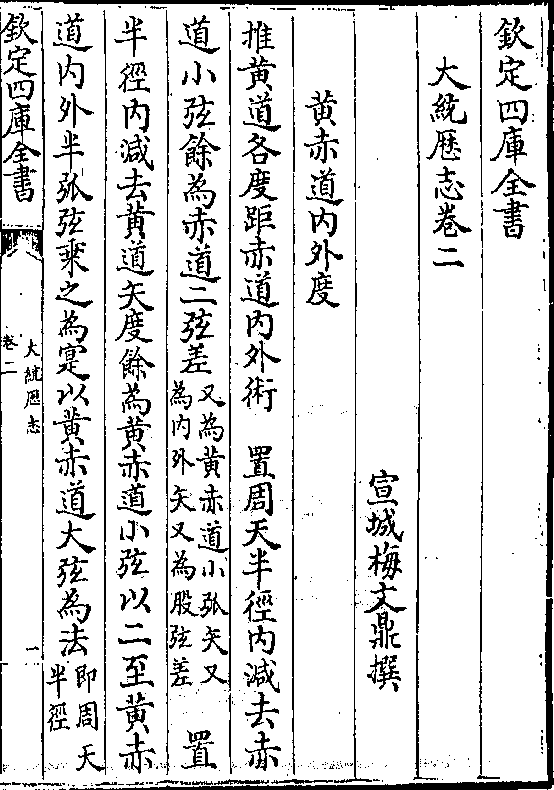 欽定四庫全書
大統歴志卷二
宣城梅文鼎撰
黄赤道内外度
推黄道各度距赤道内外術　置周天半徑内減去赤
道小弦餘為赤道二弦差又為黄赤道小弧矢又為内外矢又為股弦差　置
半徑内減去黄道矢度餘為黄赤道小弦以二至黄赤
道内外半弧弦乗之為寔以黄赤道大弦為法即周天半徑
欽定四庫全書
大統歴志
卷二
一